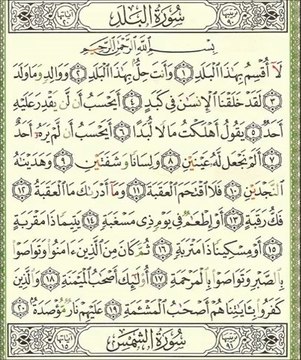 سُورَةُ الْبَلَدِ
بِسْمِ اللَّهِ الرَّحْمَٰنِ الرَّحِيمِ
لَا أُقْسِمُ بِهَٰذَا الْبَلَدِ ١ وَأَنتَ حِلٌّ بِهَٰذَا الْبَلَدِ ٢ وَوَالِدٍ وَمَا وَلَدَ
٣ لَقَدْ خَلَقْنَا الْإِنسَٰنَ فِي كَبَدٍ ٤ أَيَحْسَبُ أَن لَّن يَقْدِرَ عَلَيْهِ
أَحَدٌ ٥ يَقُولُ أَهْلَكْتُ مَالًا لُّبَدًا ٦ أَيَحْسَبُ أَن لَّمْ يَرَهُ أَحَدٌ
٧ أَلَمْ نَجْعَل لَّهُ عَيْنَيْنِ ٨ وَلِسَانًا وَشَفَتَيْنِ ٩ وَهَدَيْنَٰهُ
النَّجْدَيْنِ ١٠ فَلَا اقْتَحَمَ الْعَقَبَةَ ١١ وَمَا أَدْرَىٰكَ مَا الْعَقَبَةُ ١٢
فَكُّ رَقَبَةٍ ١٣ أَوْ إِطْعَٰمٌ فِي يَوْمٍ ذِي مَسْغَبَةٍ ١٤ يَتِيمًا ذَا مَقْرَبَةٍ
١٥ أَوْ مِسْكِينًا ذَا مَتْرَبَةٍ ١٦ ثُمَّ كَانَ مِنَ الَّذِينَ ءَامَنُوا وَتَوَاصَوْا
بِالصَّبْرِ وَتَوَاصَوْا بِالْمَرْحَمَةِ ١٧ أُولَٰئِكَ أَصْحَٰبُ الْمَيْمَنَةِ ١٨ وَالَّذِينَ
كَفَرُوا بِـَٔايَٰتِنَا هُمْ أَصْحَٰبُ الْمَشْـَٔمَةِ ١٩ عَلَيْهِمْ نَارٌ مُّؤْصَدَةٌ ٢٠
سُورَةُ الشَّمْسِ